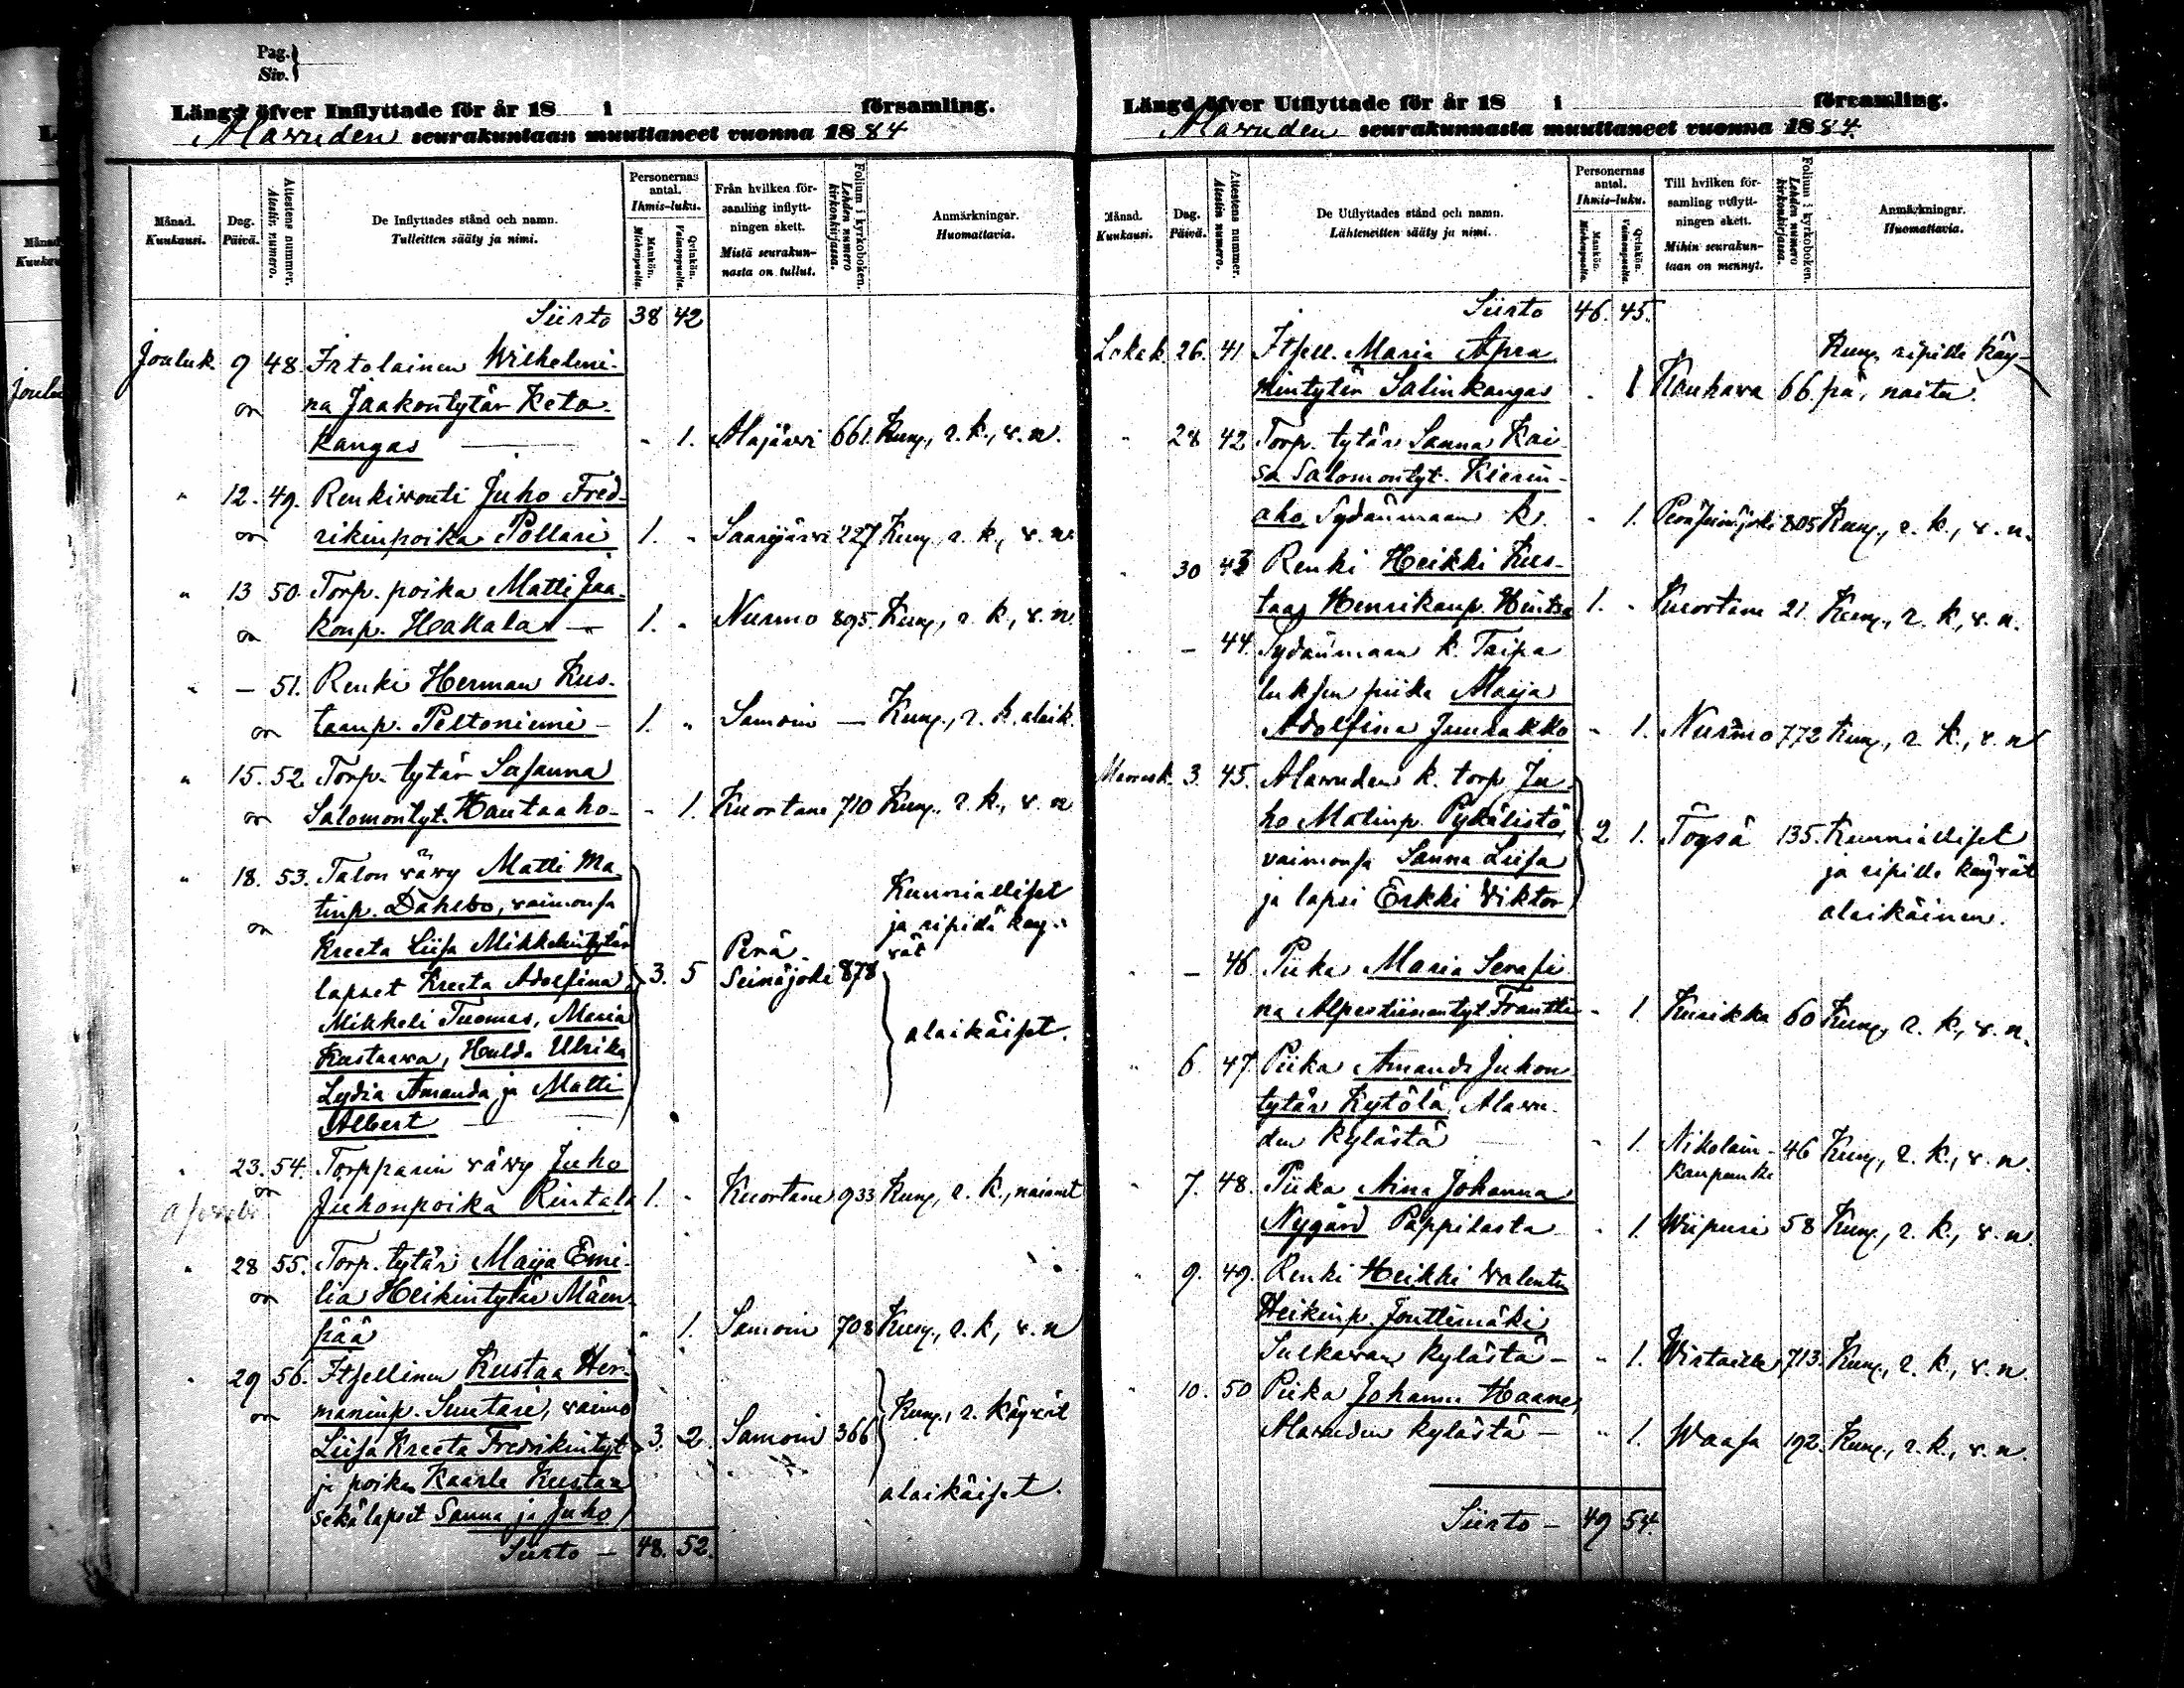 Pag.
Siv.
Längd öfver Inflyttade för år 18 i församling.
Alavuden seurakuntaan muuttaneet vuonna 1884
Månad. Kuukausi.
Dag. Päivä.
Attestens nummer. Atestin numero.
De Inflyttades stånd och namn. Tulleitten sääty ja nimi.
Personernas antal. Ihmis-luku.
Mankön. Miehenpuolta.
Qvinkön. Vaimonpuolta.
Från hvilken församling inflyttningen skett. Mistä seurakunnasta on tullut.
Folium i kyrkoboken. Lehden numero kirkonkirjassa.
Anmärkningar. Huomattavia.
Siirto 38 42
Jouluk. 9 48. Irtolainen Wilhelmi-
na Jaakontytär Keto-
kangas - 1. Alajärvi 661. Kunn., r. k., v. n.
" 12. 49. Renkivouti Juho Fred-
rikinpoika Pollari 1. " Saarijärvi 227 Kunn., r. k., v. n.
" 13 50. Torp. poika Matti Jaa-
konp. Hakala 1. " Nurmo 895. Kunn., r. k., v. n.
" - 51. Renki Herman Kus-
taanp. Peltoniemi 1. " Samoin - Kunn., r. k. alaik.
" 15. 52. Torp. tytär Susanna
Salomontyt. Hautaaho - 1. Kuortane 710 Kunn., r. k., v. n
" 18. 53. Talon vävy Matti Ma-
tinp. Dahlbo, vaimonsa
Kreeta Liisa Mikkelintytär
lapset Kreeta Adolfina 3. 5 Perä-Seinäjoki 878 Kunnialliset ja ripillä käyvät
Mikkeli Tuomas, Maria
Kustaava, Hulda Ulrika alaikäiset.
Lydia Amanda ja Matti
Albert
" 23. 54. Torpparin vävy Juho
Juhonpoika Rintala 1. " Kuortane 933 Kunn., r. k., nainut
" 28 55. Torp. tytär Maija Emi-
lia Heikintytär Mäen-
pää " 1. Samoin 708 Kunn., r. k., v. n
" 29 56. Itsellinen Kustaa Her-
maninp. Suutari, vaimo
Liisa Kreeta Fredrikintyt 3. 2. Samoin 366 Kunn., r. käyvät
ja poika Kaarle Kustaa
sekä lapset Sanna ja Juho alaikäiset.
Siirto - 48. 52.
Längd öfver Utflyttade för år 18 i församling.
Alavuden seurakunnasta muuttaneet vuonna 1884.
Månad. Kuukausi.
Dag. Päivä.
Attestens nummer. Atestin numero.
De Utflyttades stånd och namn. Lähteneitten sääty ja nimi.
Personernas antal. Ihmis-luku.
Mankön. Miehenpuolta.
Qvinkön. Vaimonpuolta.
Till hvilken församling utflyttningen skett. Mihin seurakuntaan on mennyt.
Folium i kyrkoboken. Lehden numero kirkonkirjassa.
Anmärkningar. Huomattavia.
Siirto 46. 45.
Lokak. 26. 41 Itsell. Maria Apra- Kunn. ripille käy-
mintytär Salinkangas . 1 Kauhava 66 pä, naitu.
" 28 42 Torp. tytär Sanna Kai-
sa Salomontyt. Kierin-
aho Sydänmaan k. " 1. Peräseinäjoki 805 Kunn., r. k., v. n.
" 30 43 Renki Heikki Kus-
taa Henrikinp. Hintsa 1. " Kuortane 21. Kunn., r. k., v. n.
- 44. Sydänmaan k. Taipa-
luksen piika Maija
Adolfina Juurakko " 1. Nurmo 772 Kunn., r. k., v. n
Marrask. 3. 45. Alavuden k. torp. Ju-
ho Matinp. Pykälistö, 2 1. Töysä 135. Kunnialliset
vaimonsa Sanna Liisa ja ripille käyvät
ja lapsi Erkki Viktor alaikäinen.
" - 46 Piika Maria Serafi-
na Alpertiinantyt Frantti " 1. Kurikka 60 Kunn., r. k., v. n.
" 6. 47 Piika Amanda Juhon-
tytär Kytölä, Alavu-
den kylästä " 1. Nikolain-kaupunki 46 Kunn., r. k., v. n.
" 7. 48. Piika Aina Johanna
Nygård Pappilasta " 1. Wiipuri 58 Kunn., r. k., v. n.
" 9. 49. Renki Heikki Valentin
Heikinp. Jouttimäki
Sulkavan kylästä - " 1. Wirtailla 713. Kunn., r. k., v. n.
" 10. 50 Piika Johanna Haane,
Alavuden kylästä - " 1. Waasa 192. Kunn., r. k., v. n.
Siirto - 49 54.